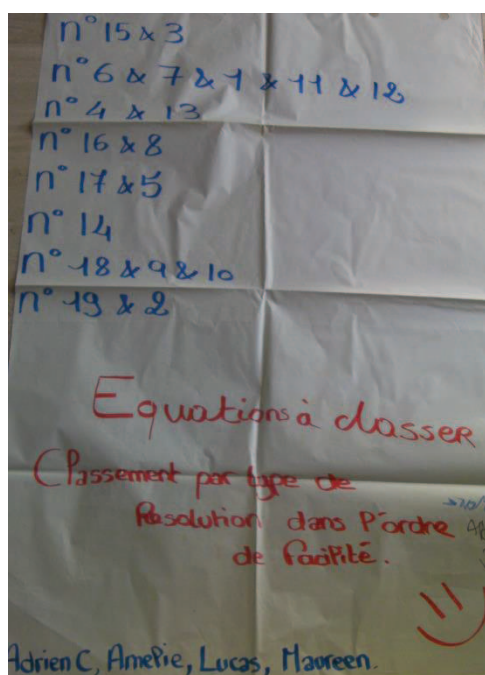 n° 15 & 3
n° 6 & 7 & 1 & 11 & 12
n° 4 & 13
n° 16 & 8
n° 17 & 5
n° 14
n° 18 & 9 & 10
n° 19 & 2
Equations à classer
Classement par type de
Résolution dans l'ordre
de facilité.
Adrien C, Amelie, Lucas, Maureen.